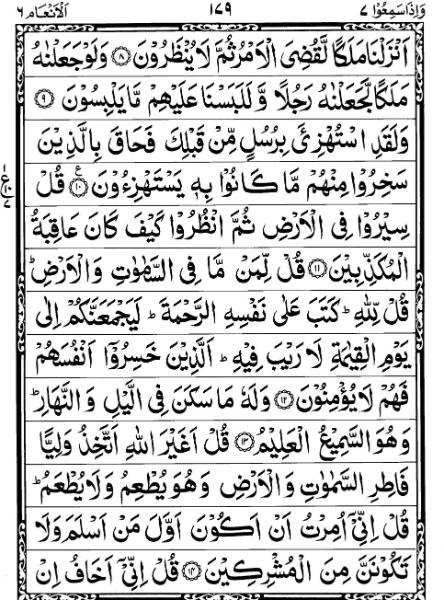 وَاِذَا سَمِعُوْا ٧ ١٧٩ اَلْاَنْعَام ٦
اَنْزَلْنَا مَلَكًا لَّقُضِيَ الْاَمْرُ ثُمَّ لَا يُنْظَرُوْنَ ﴿٨﴾ وَلَوْ جَعَلْنٰهُ
مَلَكًا لَّجَعَلْنٰهُ رَجُلًا وَّلَلَبَسْنَا عَلَيْهِمْ مَّا يَلْبِسُوْنَ ﴿٩﴾
وَلَقَدِ اسْتُهْزِئَ بِرُسُلٍ مِّنْ قَبْلِكَ فَحَاقَ بِالَّذِيْنَ
سَخِرُوْا مِنْهُمْ مَّا كَانُوْا بِهٖ يَسْتَهْزِءُوْنَ ﴿١٠﴾ ع قُلْ
سِيْرُوْا فِي الْاَرْضِ ثُمَّ انْظُرُوْا كَيْفَ كَانَ عَاقِبَةُ
الْمُكَذِّبِيْنَ ﴿١١﴾ قُلْ لِّمَنْ مَّا فِي السَّمٰوٰتِ وَالْاَرْضِ ؕ
قُلْ لِّلّٰهِ ؕ كَتَبَ عَلٰى نَفْسِهِ الرَّحْمَةَ ؕ لَيَجْمَعَنَّكُمْ اِلٰى
يَوْمِ الْقِيٰمَةِ لَا رَيْبَ فِيْهِ ؕ اَلَّذِيْنَ خَسِرُوْٓا اَنْفُسَهُمْ
فَهُمْ لَا يُؤْمِنُوْنَ ﴿١٢﴾ وَلَهٗ مَا سَكَنَ فِي الَّيْلِ وَالنَّهَارِ ؕ
وَهُوَ السَّمِيْعُ الْعَلِيْمُ ﴿١٣﴾ قُلْ اَغَيْرَ اللّٰهِ اَتَّخِذُ وَلِيًّا
فَاطِرِ السَّمٰوٰتِ وَالْاَرْضِ وَهُوَ يُطْعِمُ وَلَا يُطْعَمُ ؕ
قُلْ اِنِّيْٓ اُمِرْتُ اَنْ اَكُوْنَ اَوَّلَ مَنْ اَسْلَمَ وَلَا
تَكُوْنَنَّ مِنَ الْمُشْرِكِيْنَ ﴿١٤﴾ قُلْ اِنِّيْٓ اَخَافُ اِنْ